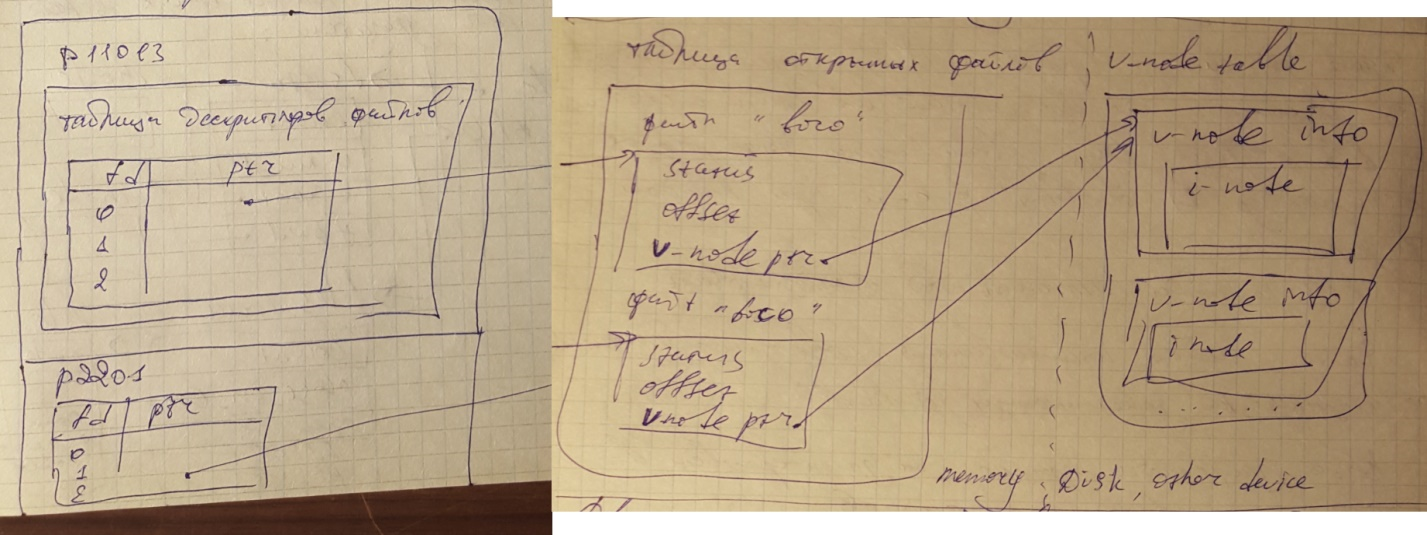 p11013
таблица дескрипторов файлов
fd ptr
0
1
2
p2201
fd ptr
0
1
2
таблица открытых файлов
файл
status
offset
v-node ptr
файл
status
offset
v-node ptr
v-node table
v-node info
i-node
v-node info
i node
. . . . . . .
memory Disk, other device